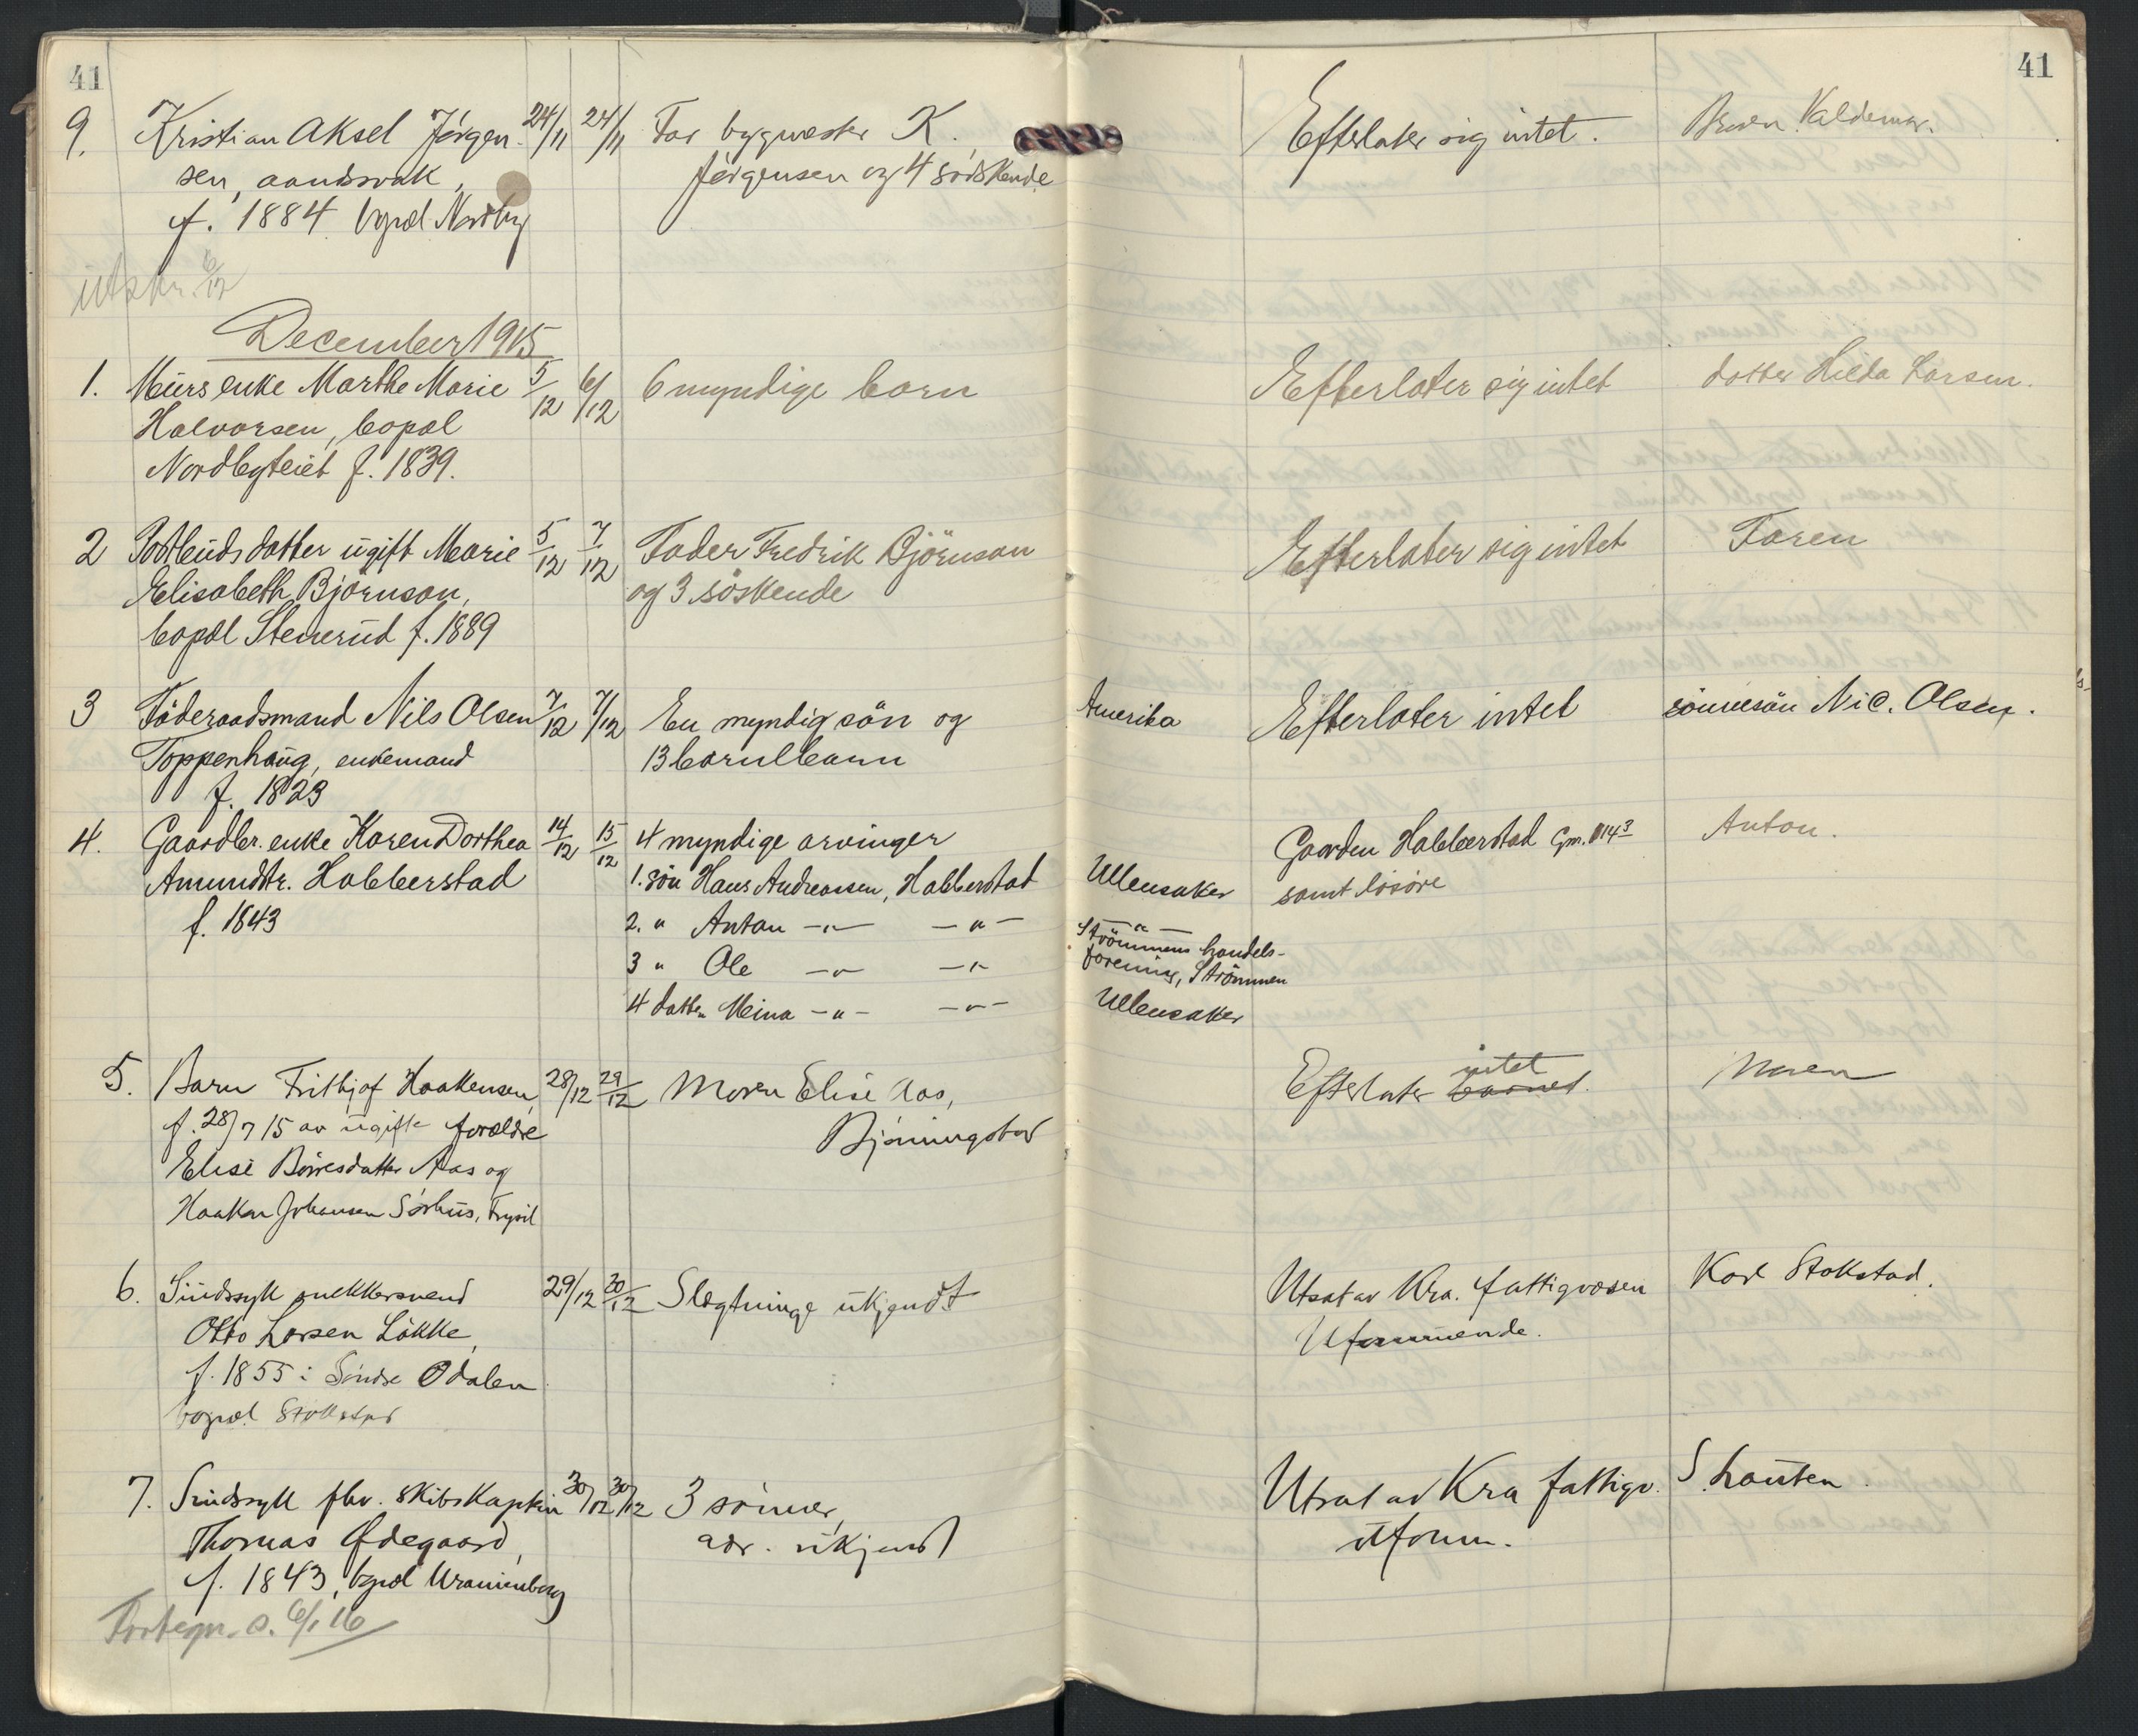 41
41
9. Kristian Aksel Jörgen- 24/11 24/11 Far bygmester K. Efterlater sig intet. Broren Valdemar.
sen, aandsvak, Jörgensen og 4 södskende
f. 1884 bopæl Nordby
utskr. 6/12
December 1915
1. Murs enke Marthe Marie 5/12 6/12 6 myndige barn Efterlater sig intet datter Hilda Larsen.
Halvorsen, bopæl
Nordbyteiet f. 1839.
2 Postbuds datter ugift Marie 5/12 7/12 Fader Fredrik Björnson Efterlater sig intet Faren
Elisabeth Björnson, og 3 söskende
bopæl Stenerud f. 1889
3 Föderaadsmand Nils Olsen 7/12 7/12 En myndig sön og Amerika Efterlater intet sönnesön Nic. Olsen.
Toppenhaug, enkemand 13 barnebarn
f. 1823
4. Gaardbr. enke Karen Dorthea 14/12 15/12 4 myndige arvinger Gaarden Habberstad Gm. 114³ Anton.
Amundstr. Habberstad 1. sön Hans Andreassen, Habberstad Ullensaker samt lösöre
f. 1843 2. " Anton —"— —"— —"—
3 " Ole —"— —"— Strömmens handels-
forening, Strömmen
4 datter Meina —"— —"— Ullensaker
5. Barn Frithjof Haakensen, 28/12 29/12 Moren Elise Aas, Efterlater intet barnet. Moren
f. 28/7 15 av ugifte forældre Bjönningstad
Elise Börresdatter Aas og
Haakon Johansen Sörhus, Trysil
6. Sindssyk snekkersvend 29/12 30/12 Slegtninge ukjendt Utsat av Kra. fattigvæsen Karl Stokstad.
Otto Larsen Lökke, Uformuende.
f. 1855 i Söndre Odalen
bopæl Stokstad
7. Sindssyk fhv. skibskaptein 30/12 30/12 3 sönner, Utsat av Kra fattigv. S. Lauten.
Thomas Ödegaard, adr. ukjendt uform.
f. 1843, bopæl Uranienborg
Fortegn. s. 6/1 16